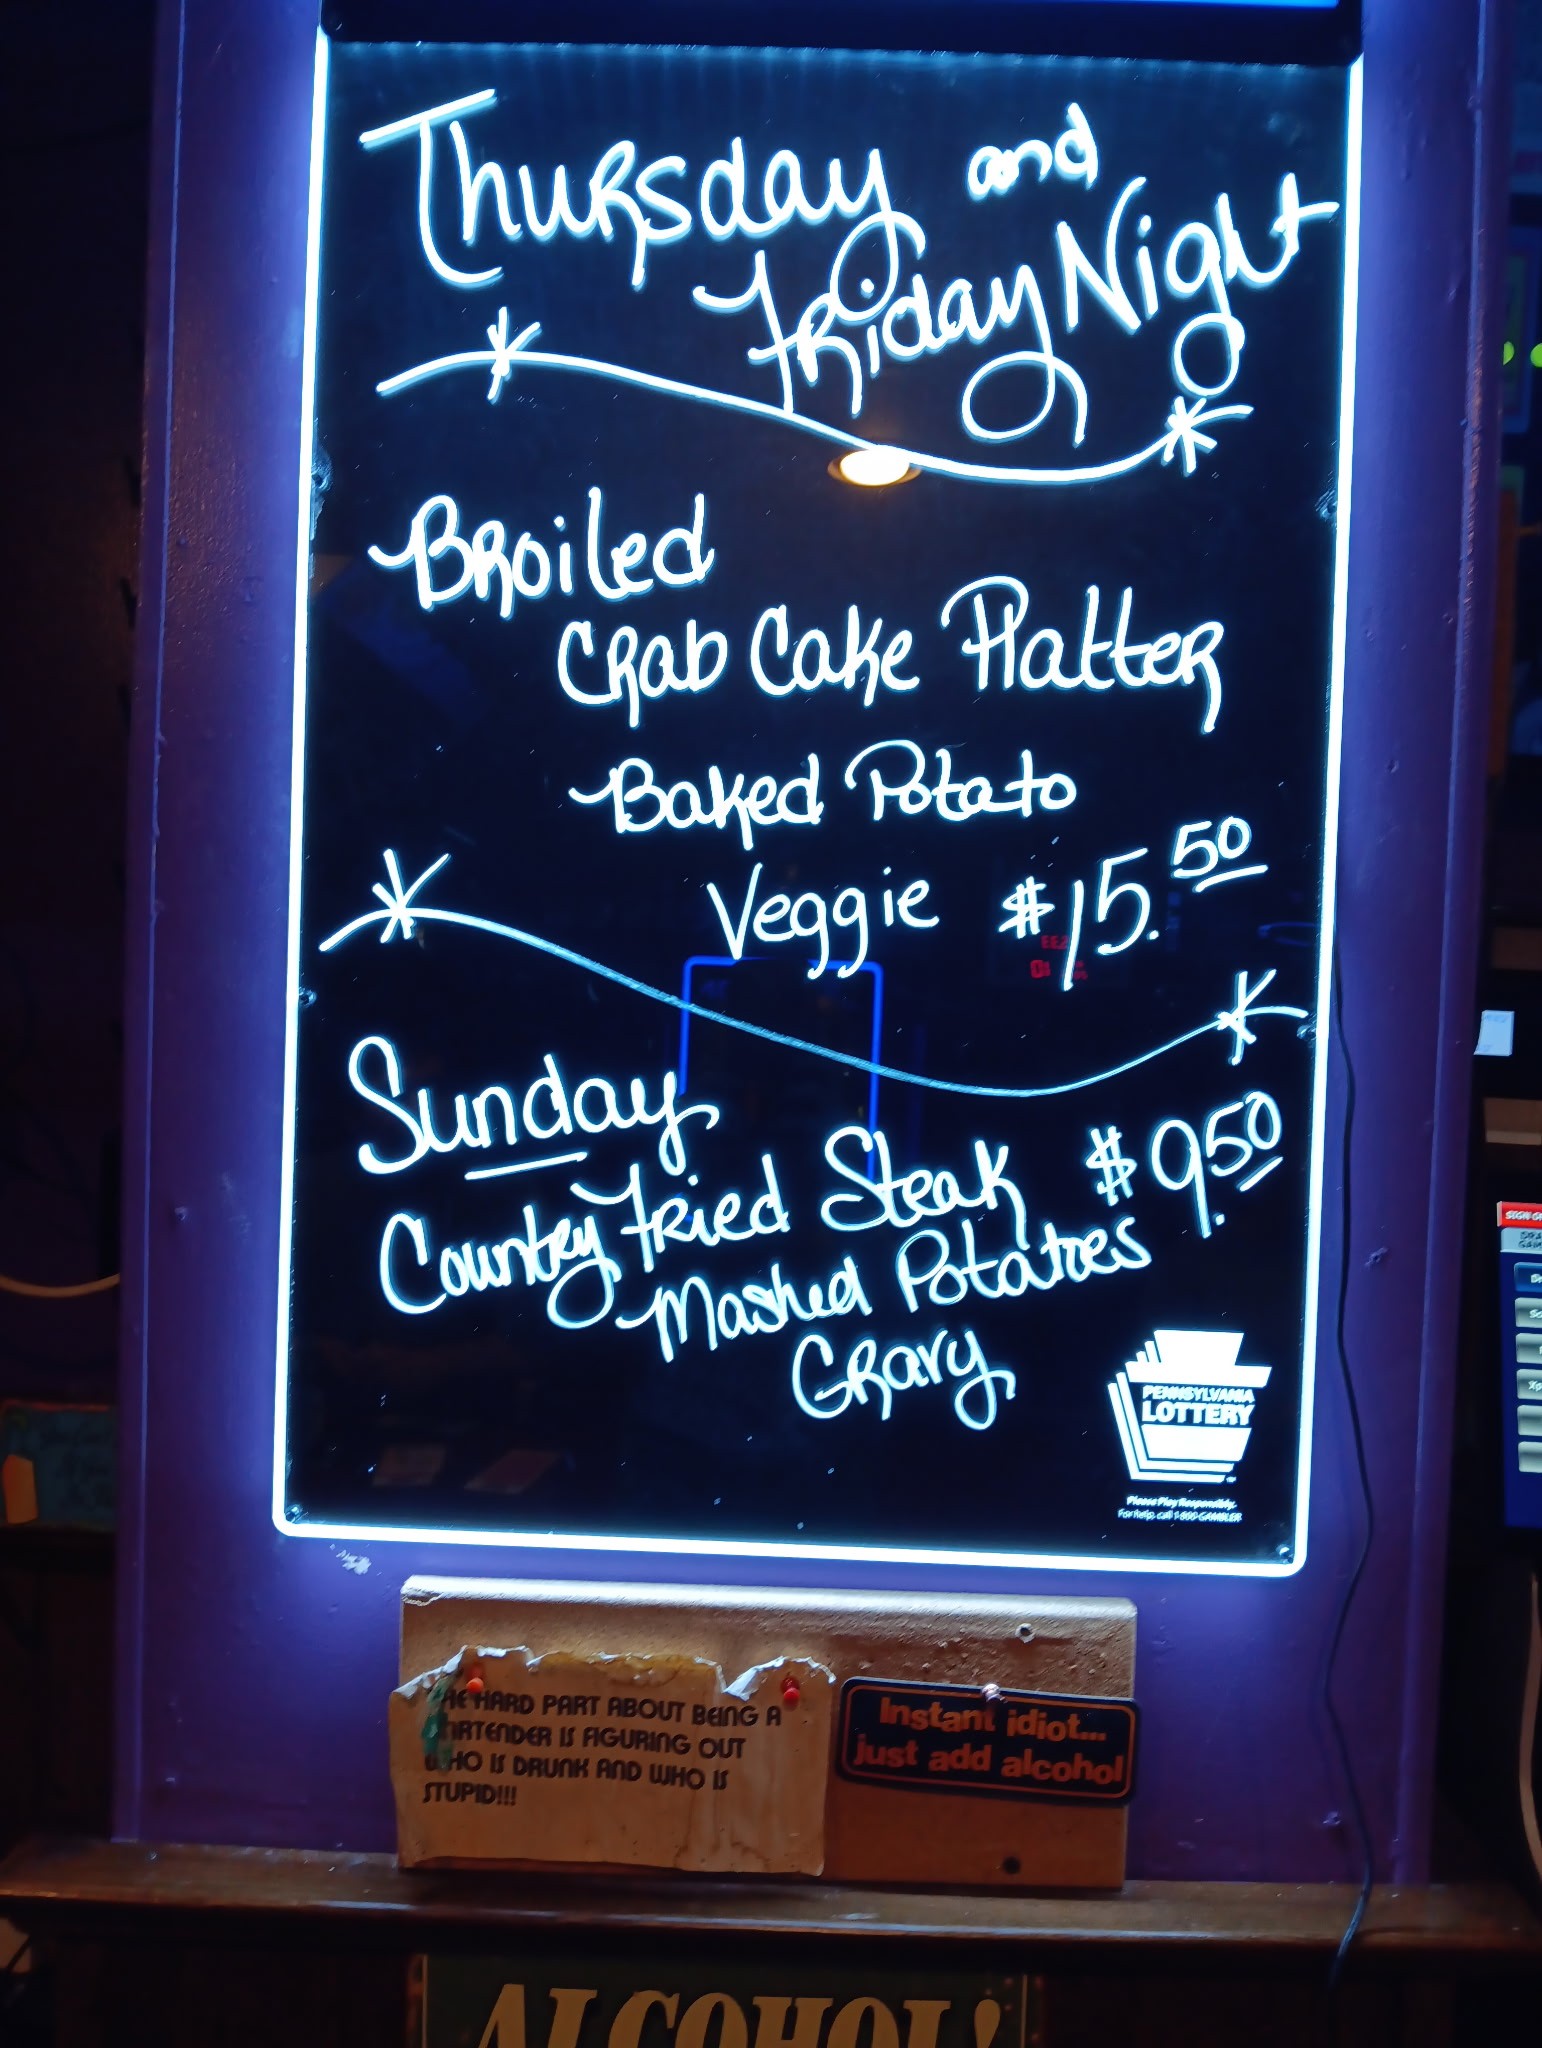 Thursday and
Friday Night
Broiled
Crab Cake Platter
Baked Potato
Veggie $15.50
Sunday
Country Fried Steak $9.50
Mashed Potatoes
Gravy
PENNSYLVANIA
LOTTERY
Please Play Responsibly.
For help, call 1-800-GAMBLER
HE HARD PART ABOUT BEING A
ARTENDER IS FIGURING OUT
WHO IS DRUNK AND WHO IS
STUPID!!!
Instant idiot...
just add alcohol
ALCOHOL!